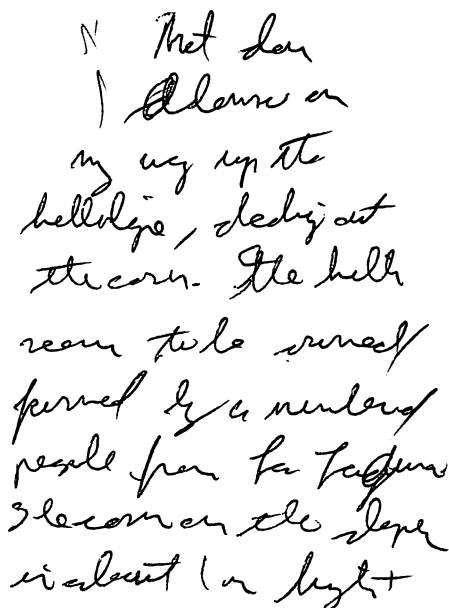 Met dan
on
my way up the
hillslope, checking out
the corn. The hills
seem to be owned/
farmed by a number of
people from La Laguna
The corn on the slope
is about 1 m height